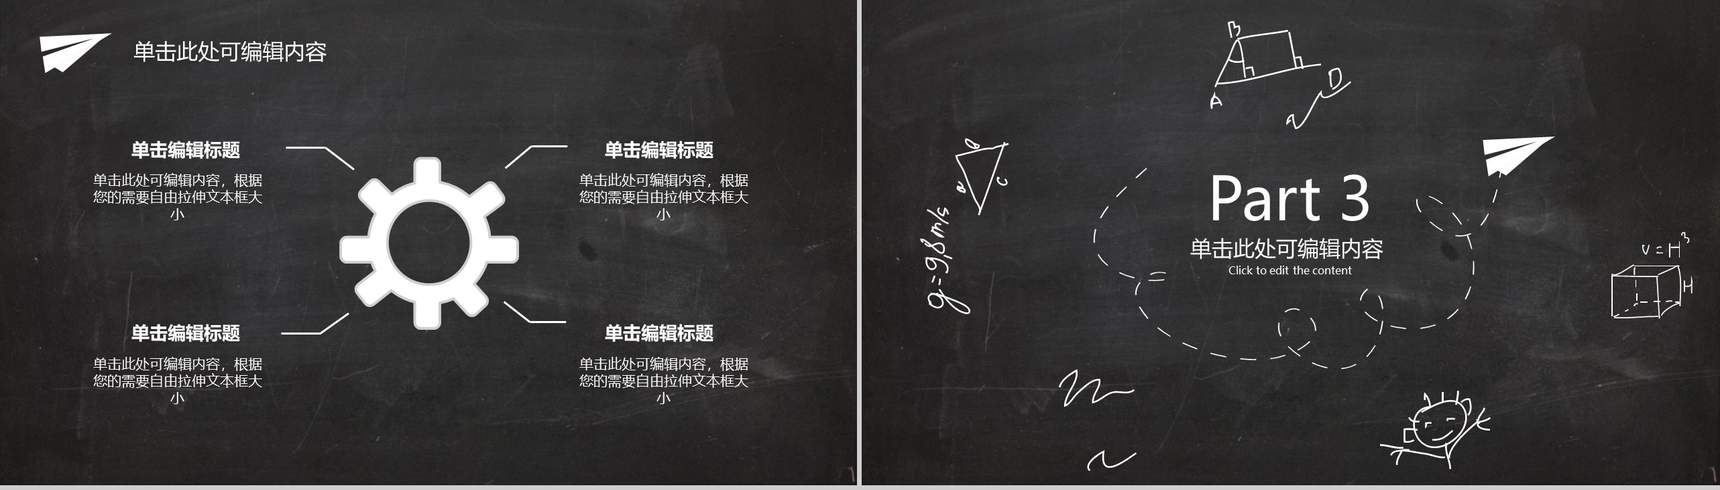 单击此处可编辑内容
单击编辑标题
单击此处可编辑内容，根据
您的需要自由拉伸文本框大
小
单击编辑标题
单击此处可编辑内容，根据
您的需要自由拉伸文本框大
小
单击编辑标题
单击此处可编辑内容，根据
您的需要自由拉伸文本框大
小
单击编辑标题
单击此处可编辑内容，根据
您的需要自由拉伸文本框大
小
B
A
D
a
c
g=9.8m/s
Part 3
单击此处可编辑内容
Click to edit the content
V=H³
H